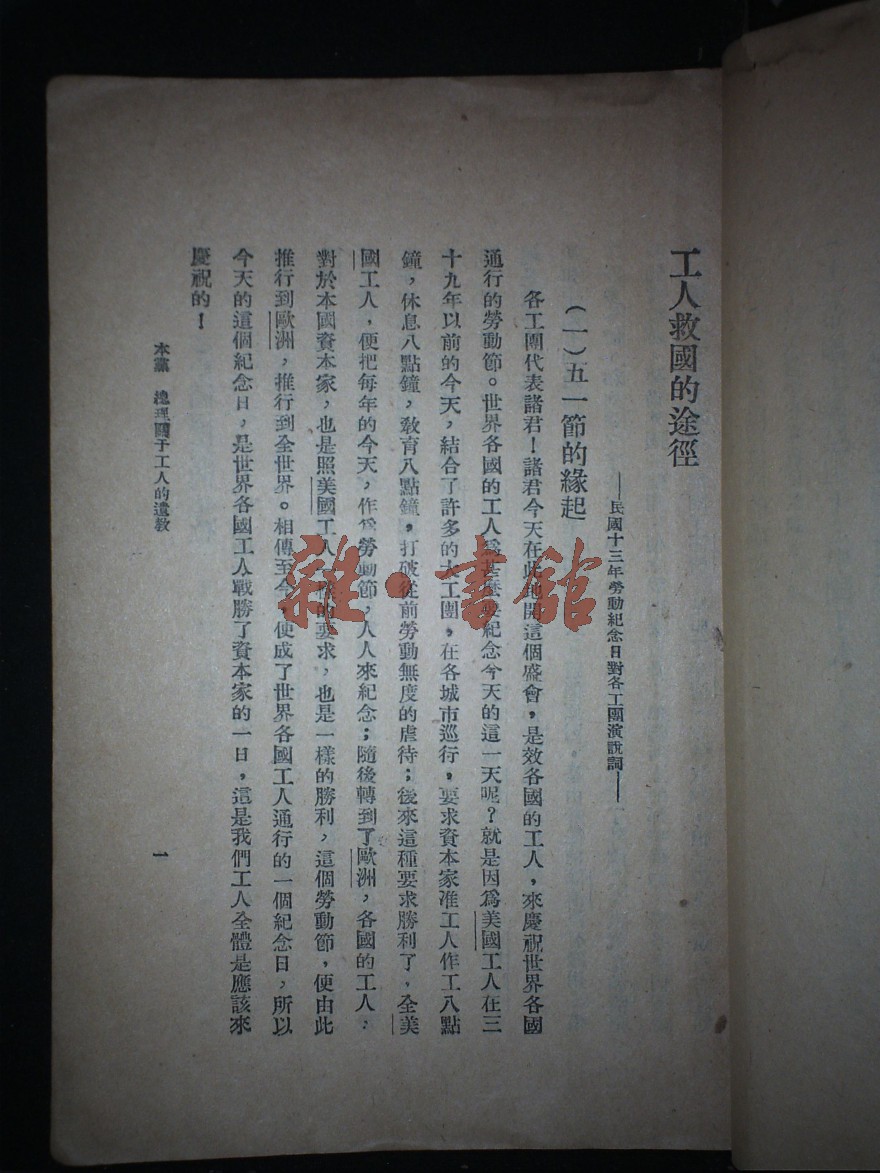 工人救國的途徑
——民國十三年勞動紀念日對各工團演說詞——
（一）五一節的緣起
各工團代表諸君！諸君今天在此地開這個盛會，是效各國的工人，來慶祝世界各國
通行的勞動節。世界各國的工人爲甚麼要紀念今天的這一天呢？就是因爲美國工人在三
十九年以前的今天，結合了許多的大工團，在各城市巡行，要求資本家准工人作工八點
鐘，休息八點鐘，敎育八點鐘，打破從前勞動無度的虐待；後來這種要求勝利了，全美
國工人，便把每年的今天，作爲勞動節，人人來紀念；隨後轉到了歐洲，各國的工人，
對於本國資本家，也是照美國工人一樣的要求，也是一樣的勝利，這個勞動節，便由此
推行到歐洲，推行到全世界。相傳至今，便成了世界各國工人通行的一個紀念日，所以
今天的這個紀念日，是世界各國工人戰勝了資本家的一日，這是我們工人全體是應該來
慶祝的！
本黨　總理關于工人的遺敎
一
雜·書館